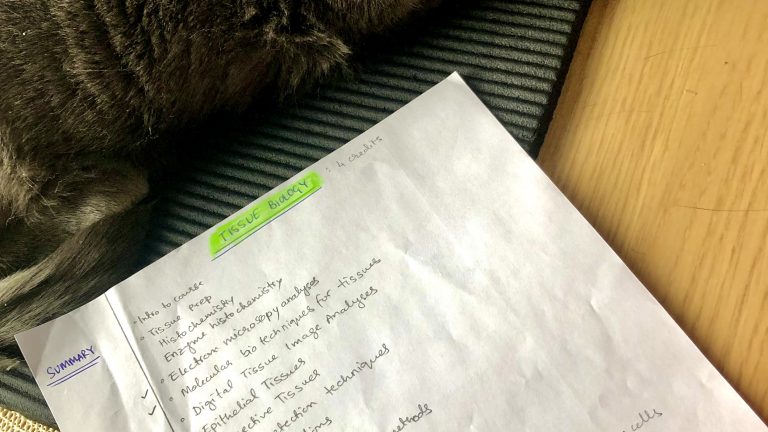 TISSUE BIOLOGY : 4 credits
SUMMARY
• Intro to course
• Tissue prep
Histochemistry
Enzyme histochemistry
• Electron microscopy analyses
• Molecular bio techniques for tissues
• Digital Tissue Image Analyses
Epithelial Tissues
Tissues
techniques
methods
cells